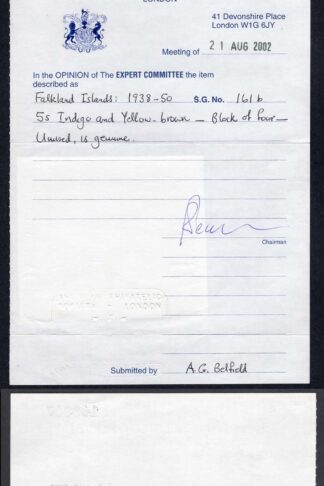 LONDON
41 Devonshire Place
London W1G 6JY
Meeting of 21 AUG 2002
In the OPINION of The EXPERT COMMITTEE the item
described as
Falkland Islands: 1938-50 S.G. No. 161b
5s Indigo and Yellow-brown - Block of four -
Unused, is genuine.
Chairman
PHILATELIC
SOCIETY LONDON
Submitted by A.G. Belfield